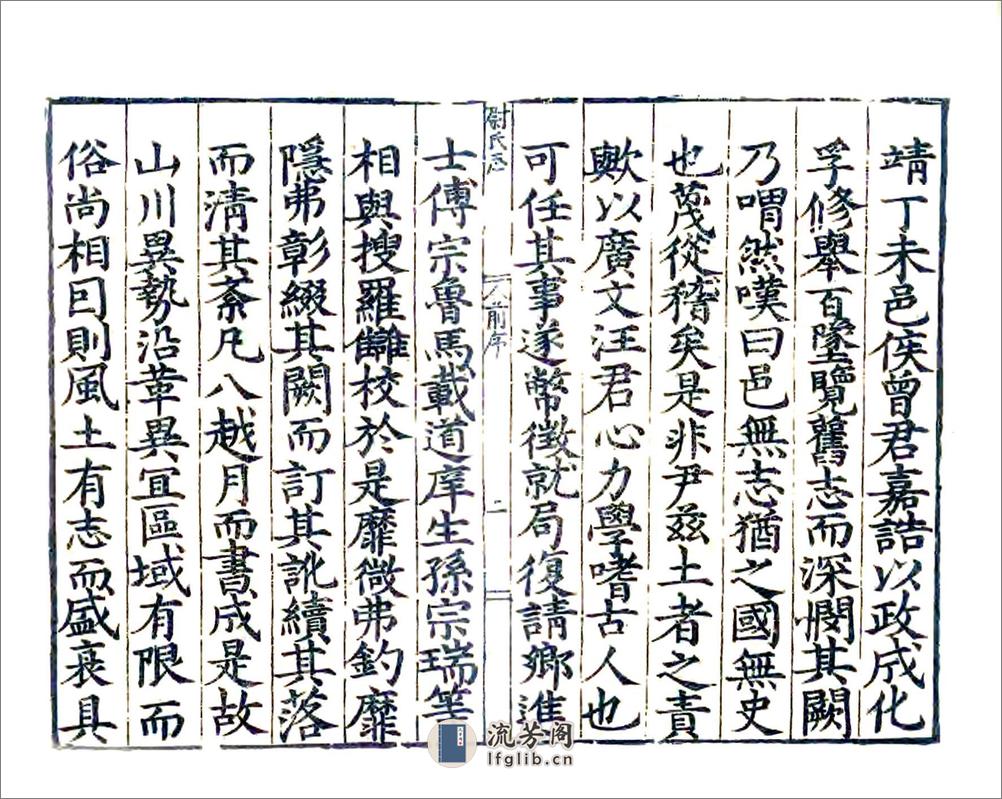 靖丁未邑侯曾君嘉誥以政成化
孚修舉百墜覽舊志而深憫其闕
乃喟然嘆曰邑無志猶之國無史
也茂從稽矣是非尹茲土者之責
歟以廣文汪君心力學嗜古人也
可任其事遂幣徵就局復請鄉進
尉氏志
前序
二
士傅宗魯馬載道庠生孫宗瑞等
相與搜羅讎校於是靡微弗釣靡
隱弗彰綴其闕而訂其訛續其落
而清其紊凡八越月而書成是故
山川異勢沿革異宜區域有限而
俗尚相囙則風土有志而盛衰具
流芳阁
lfglib.cn